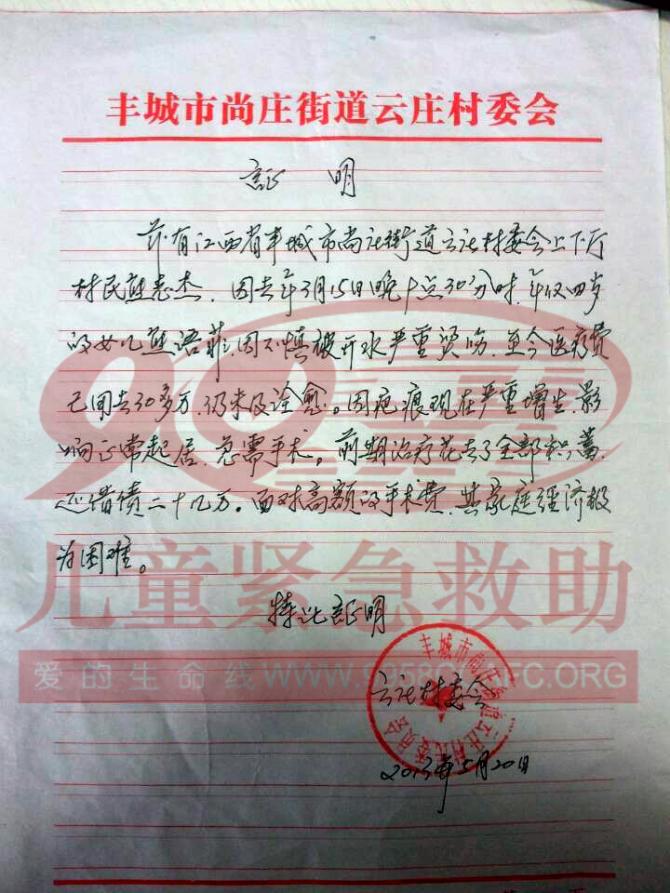 丰城市尚庄街道云庄村委会
证 明
兹有江西省丰城市尚庄街道云庄村委会上下厅
村民熊志杰,因去年3月15日晚十点30分时,年仅四岁
的女儿熊语菲,因不慎被开水严重烫伤,至今医疗费
已用去30多万,仍未及诠愈。因疤痕现在严重增生,影
响正常起居,急需手术。前期治疗花去了全部积蓄,
还借债二十几万。面对高额的手术费,其家庭经济极
为困难。
特此证明
云庄村委会
2013年5月20日
丰城市尚庄街道云庄村民委员会
儿童紧急救助
爱的生命线
.ORG